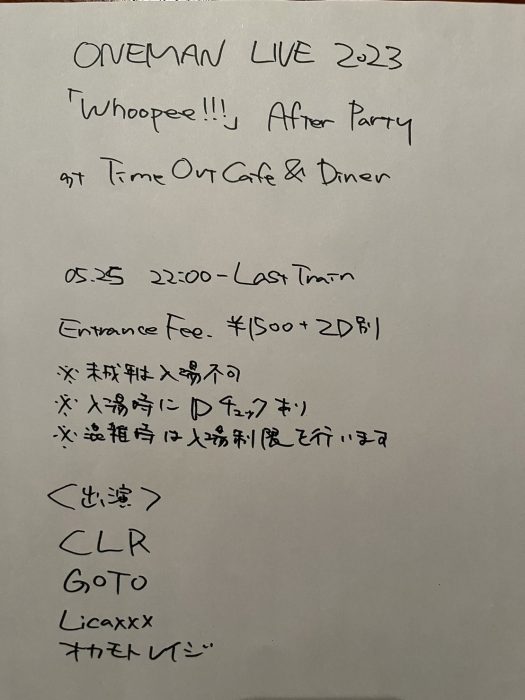 ONEMAN LIVE 2023
「Whoopee!!!」 After Party
at Time Out Cafe & Diner
05.25 22:00-Last Train
Entrance Fee. ¥1500+2D別
※未成年は入場不可
※入場時にIDチェックあり
※混雑時は入場制限を行います
<出演>
CLR
GOTO
Licaxxx
オカモトレイジ